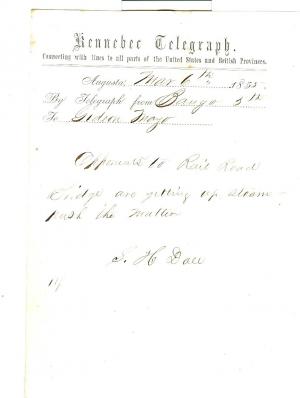 Kennebec Telegraph.
Connecting with lines to all parts of the United States and British Provinces.
Augusta, Mar 6th 1855
By Telegraph from Bangor 5th
To Gideon Mayo
Opponents to Rail Road
Bridge are getting up steam
push the matter
S. H. Dale
14